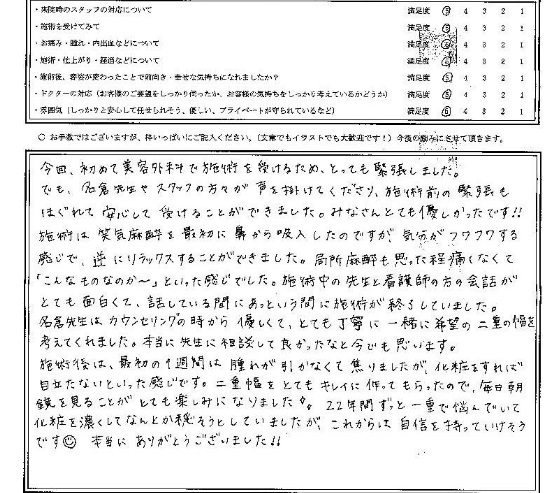 ・来院時のスタッフの対応について 満足度 ⑤ 4 3 2 1
・施術を受けてみて 満足度 ⑤ 4 3 2 1
・お痛み・腫れ・内出血などについて 満足度 4 3 2 1
・施術・仕上がり・経過などについて 満足度 4 3 2 1
・施術後、容姿が変わったことで前向き・幸せな気持ちになれましたか? 満足度 ⑤ 4 3 2 1
・ドクターの対応（お客様のご要望をしっかり伺ったか、お客様の気持ちをしっかり考えているかどうか） 満足度 ⑤ 4 3 2 1
・雰囲気（しっかりと安心して任せられそう、優しい、プライベートが守られているなど） 満足度 ⑤ 4 3 2 1
○ お手数ではございますが、枠いっぱいにご記入ください。（文章でもイラストでも大歓迎です！）今後の励みにさせて頂きます。
今回、初めて美容外科で施術を受けるため、とっても緊張しました。
でも、名倉先生やスタッフの方々が声を掛けてくださり、施術前の緊張も
ほぐれて安心して受けることができました。みなさんとても優しかったです!!
施術は笑気麻酔を最初に鼻から吸入したのですが、気分がフワフワする
感じで、逆にリラックスすることができました。局所麻酔も思った程痛くなくて
「こんなものなのか〜」といった感じでした。施術中の先生と看護師の方の会話が
とても面白くて、話している間にあっという間に施術が終了していました。
名倉先生はカウンセリングの時から優しくて、とても丁寧に一緒に希望の二重の幅を
考えてくれました。本当に先生に相談して良かったなと今でも思います。
施術後は、最初の1週間は腫れが引かなくて焦りましたが、化粧をすれば
目立たないといった感じです。二重幅をとてもキレイに作ってもらったので、毎日朝
鏡を見ることがとても楽しみになりました。22年間ずっと一重で悩んでいて
化粧を濃くしてなんとか隠そうとしていましたが、これからは自信を持っていけそう
です☺ 本当にありがとうございました!!